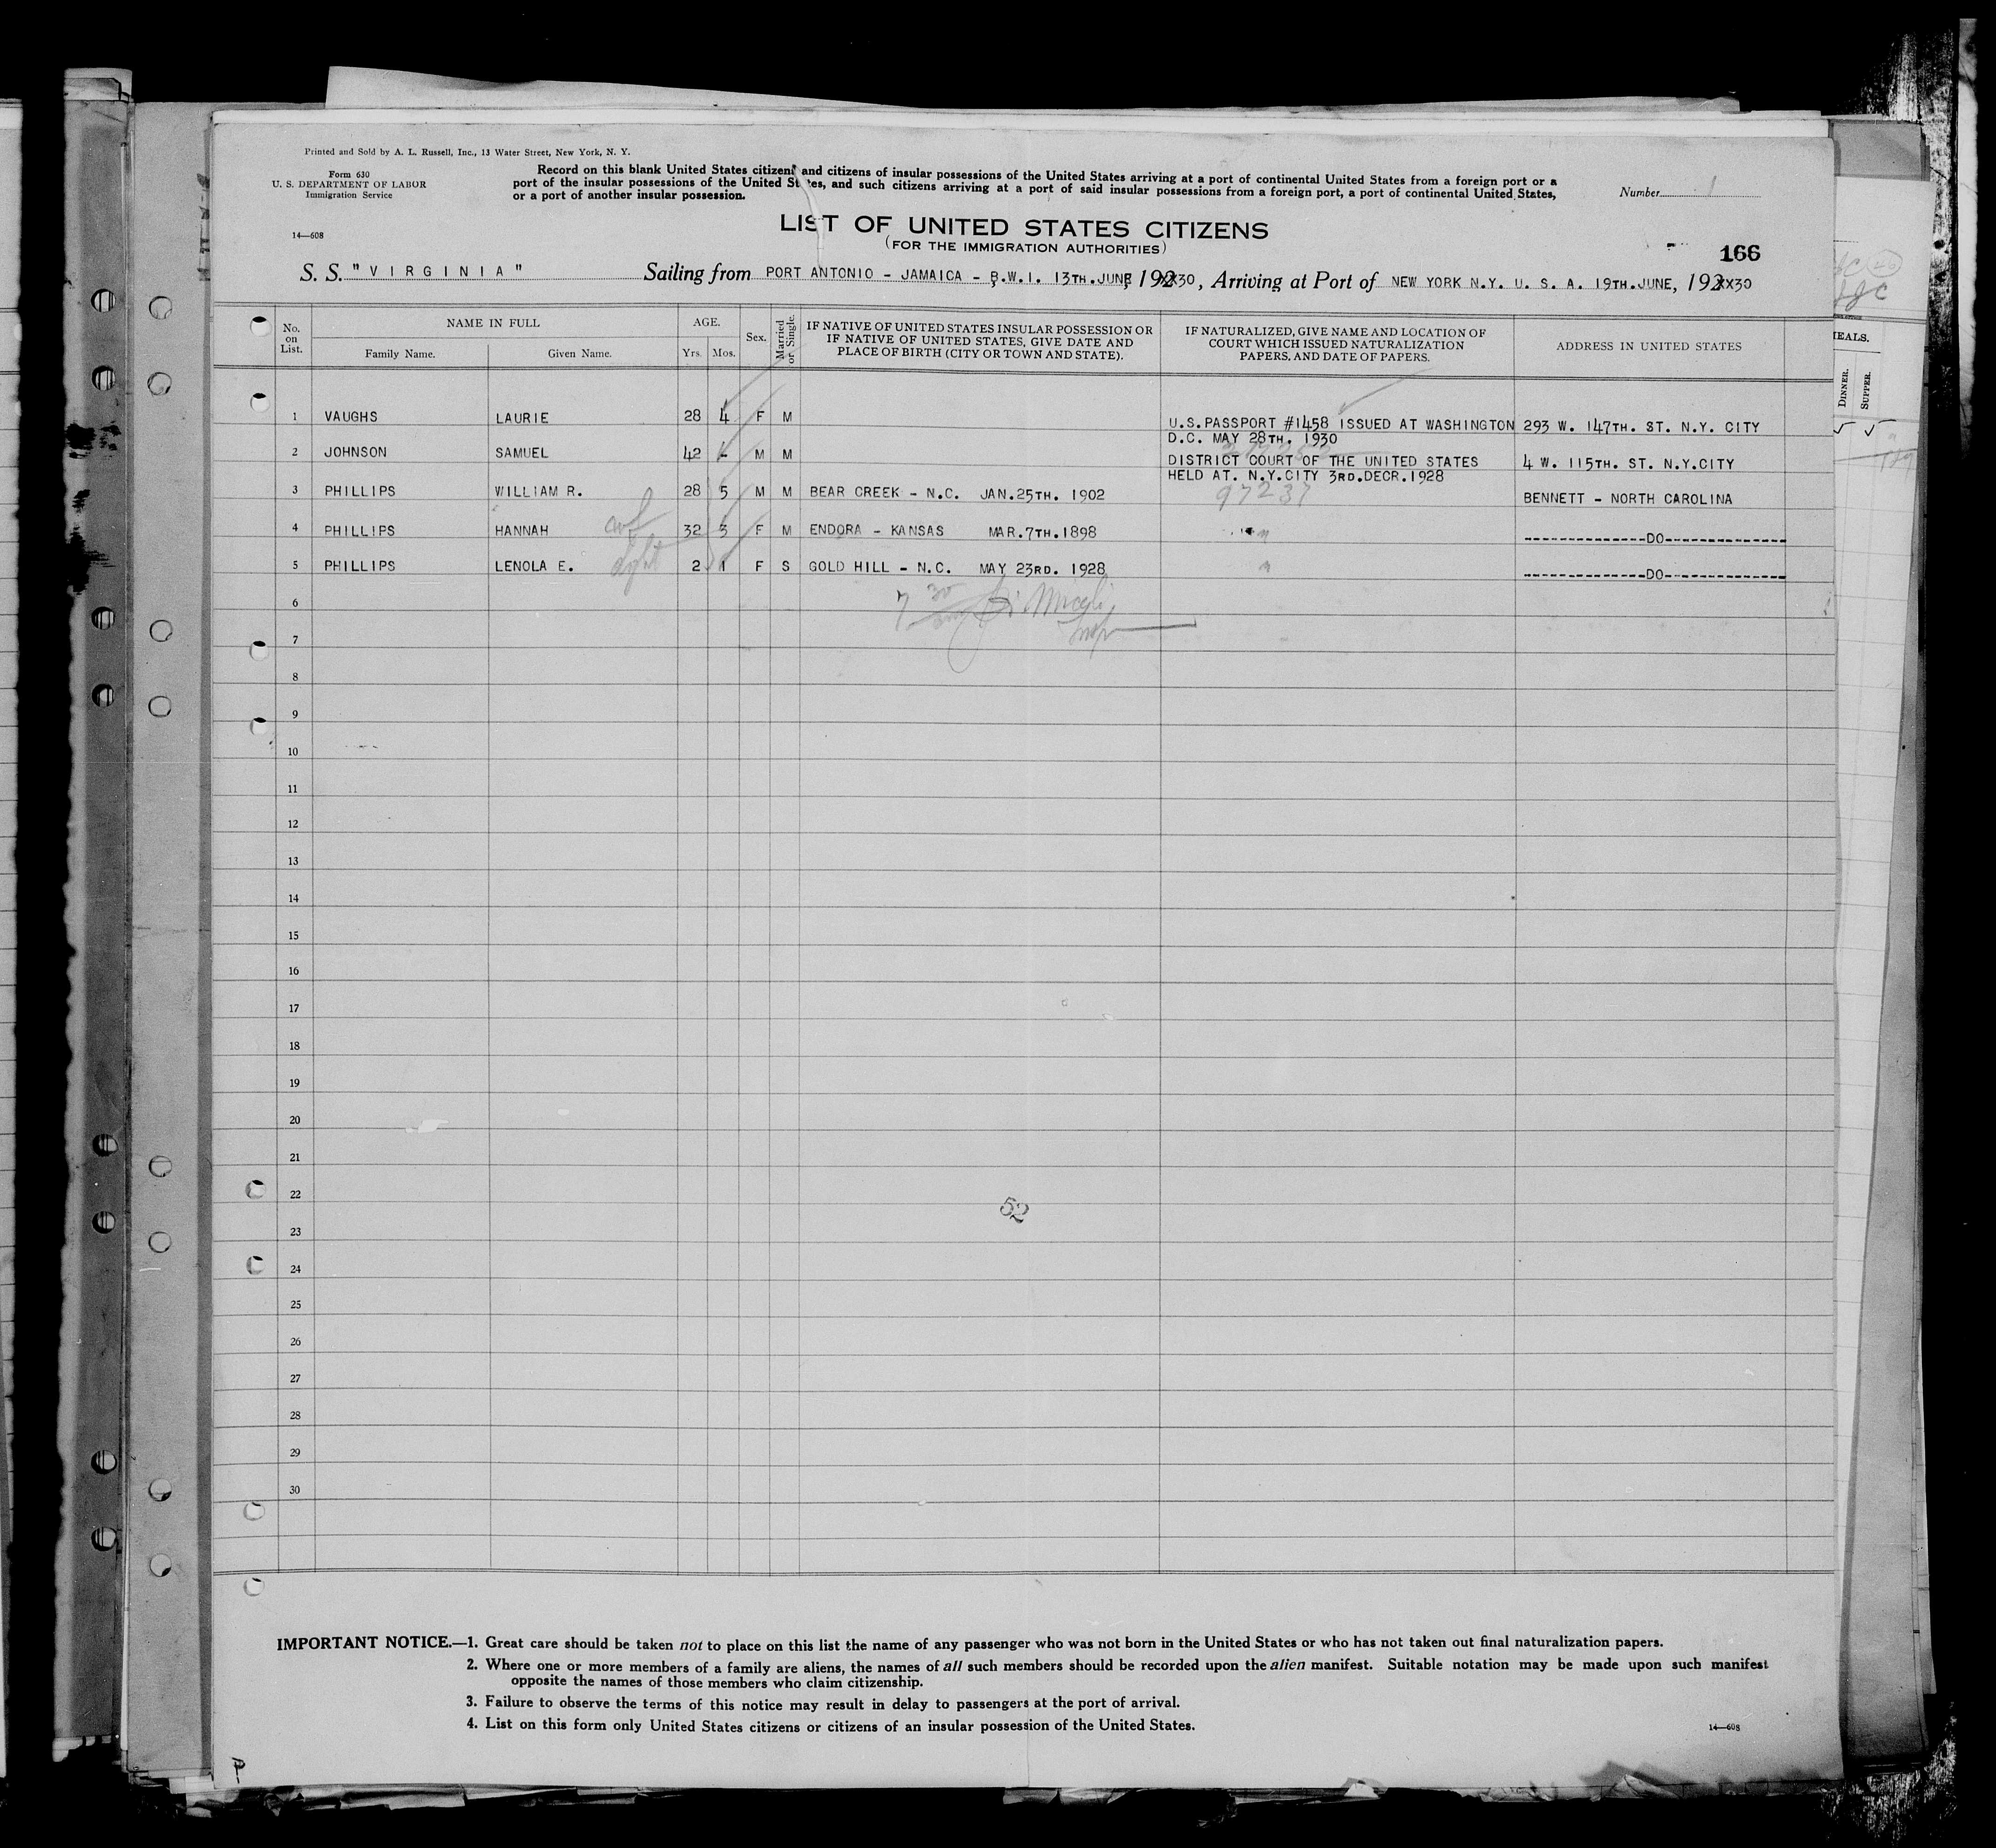 Printed and Sold by A. L. Russell, Inc., 13 Water Street, New York, N. Y.
Form 630
U. S. DEPARTMENT OF LABOR
Immigration Service
14—608
Record on this blank United States citizens and citizens of insular possessions of the United States arriving at a port of continental United States from a foreign port or a
port of the insular possessions of the United States, and such citizens arriving at a port of said insular possessions from a foreign port, a port of continental United States,
or a port of another insular possession.
Number 1
LIST OF UNITED STATES CITIZENS
(FOR THE IMMIGRATION AUTHORITIES)
166
S. S. "VIRGINIA" Sailing from PORT ANTONIO - JAMAICA - B.W.I. 13TH.JUNE, 192XX30, Arriving at Port of NEW YORK N.Y. U. S. A. 19TH.JUNE, 192XX30
No. on List. NAME IN FULL Family Name. Given Name. AGE. Yrs. Mos. Sex. Married or Single. IF NATIVE OF UNITED STATES INSULAR POSSESSION OR IF NATIVE OF UNITED STATES, GIVE DATE AND PLACE OF BIRTH (CITY OR TOWN AND STATE). IF NATURALIZED, GIVE NAME AND LOCATION OF COURT WHICH ISSUED NATURALIZATION PAPERS, AND DATE OF PAPERS. ADDRESS IN UNITED STATES
1 VAUGHS LAURIE 28 4 F M U.S.PASSPORT #1458 ISSUED AT WASHINGTON 293 W. 147TH. ST. N.Y. CITY
D.C. MAY 28TH. 1930
2 JOHNSON SAMUEL 42 - M M DISTRICT COURT OF THE UNITED STATES 4 W. 115TH. ST. N.Y.CITY
HELD AT. N.Y.CITY 3RD.DECR.1928
3 PHILLIPS WILLIAM R. 28 5 M M BEAR CREEK - N.C. JAN.25TH. 1902 97237 BENNETT - NORTH CAROLINA
4 PHILLIPS HANNAH 32 3 F M ENDORA - KANSAS MAR.7TH.1898 " --------------DO--------------
5 PHILLIPS LENOLA E. 2 1 F S GOLD HILL - N.C. MAY 23RD. 1928 " --------------DO--------------
6
7
8
9
10
11
12
13
14
15
16
17
18
19
20
21
22
52
23
24
25
26
27
28
29
30
IMPORTANT NOTICE.—1. Great care should be taken not to place on this list the name of any passenger who was not born in the United States or who has not taken out final naturalization papers.
2. Where one or more members of a family are aliens, the names of all such members should be recorded upon the alien manifest. Suitable notation may be made upon such manifest
opposite the names of those members who claim citizenship.
3. Failure to observe the terms of this notice may result in delay to passengers at the port of arrival.
4. List on this form only United States citizens or citizens of an insular possession of the United States.
14—608
P
MEALS.
DINNER.
SUPPER.